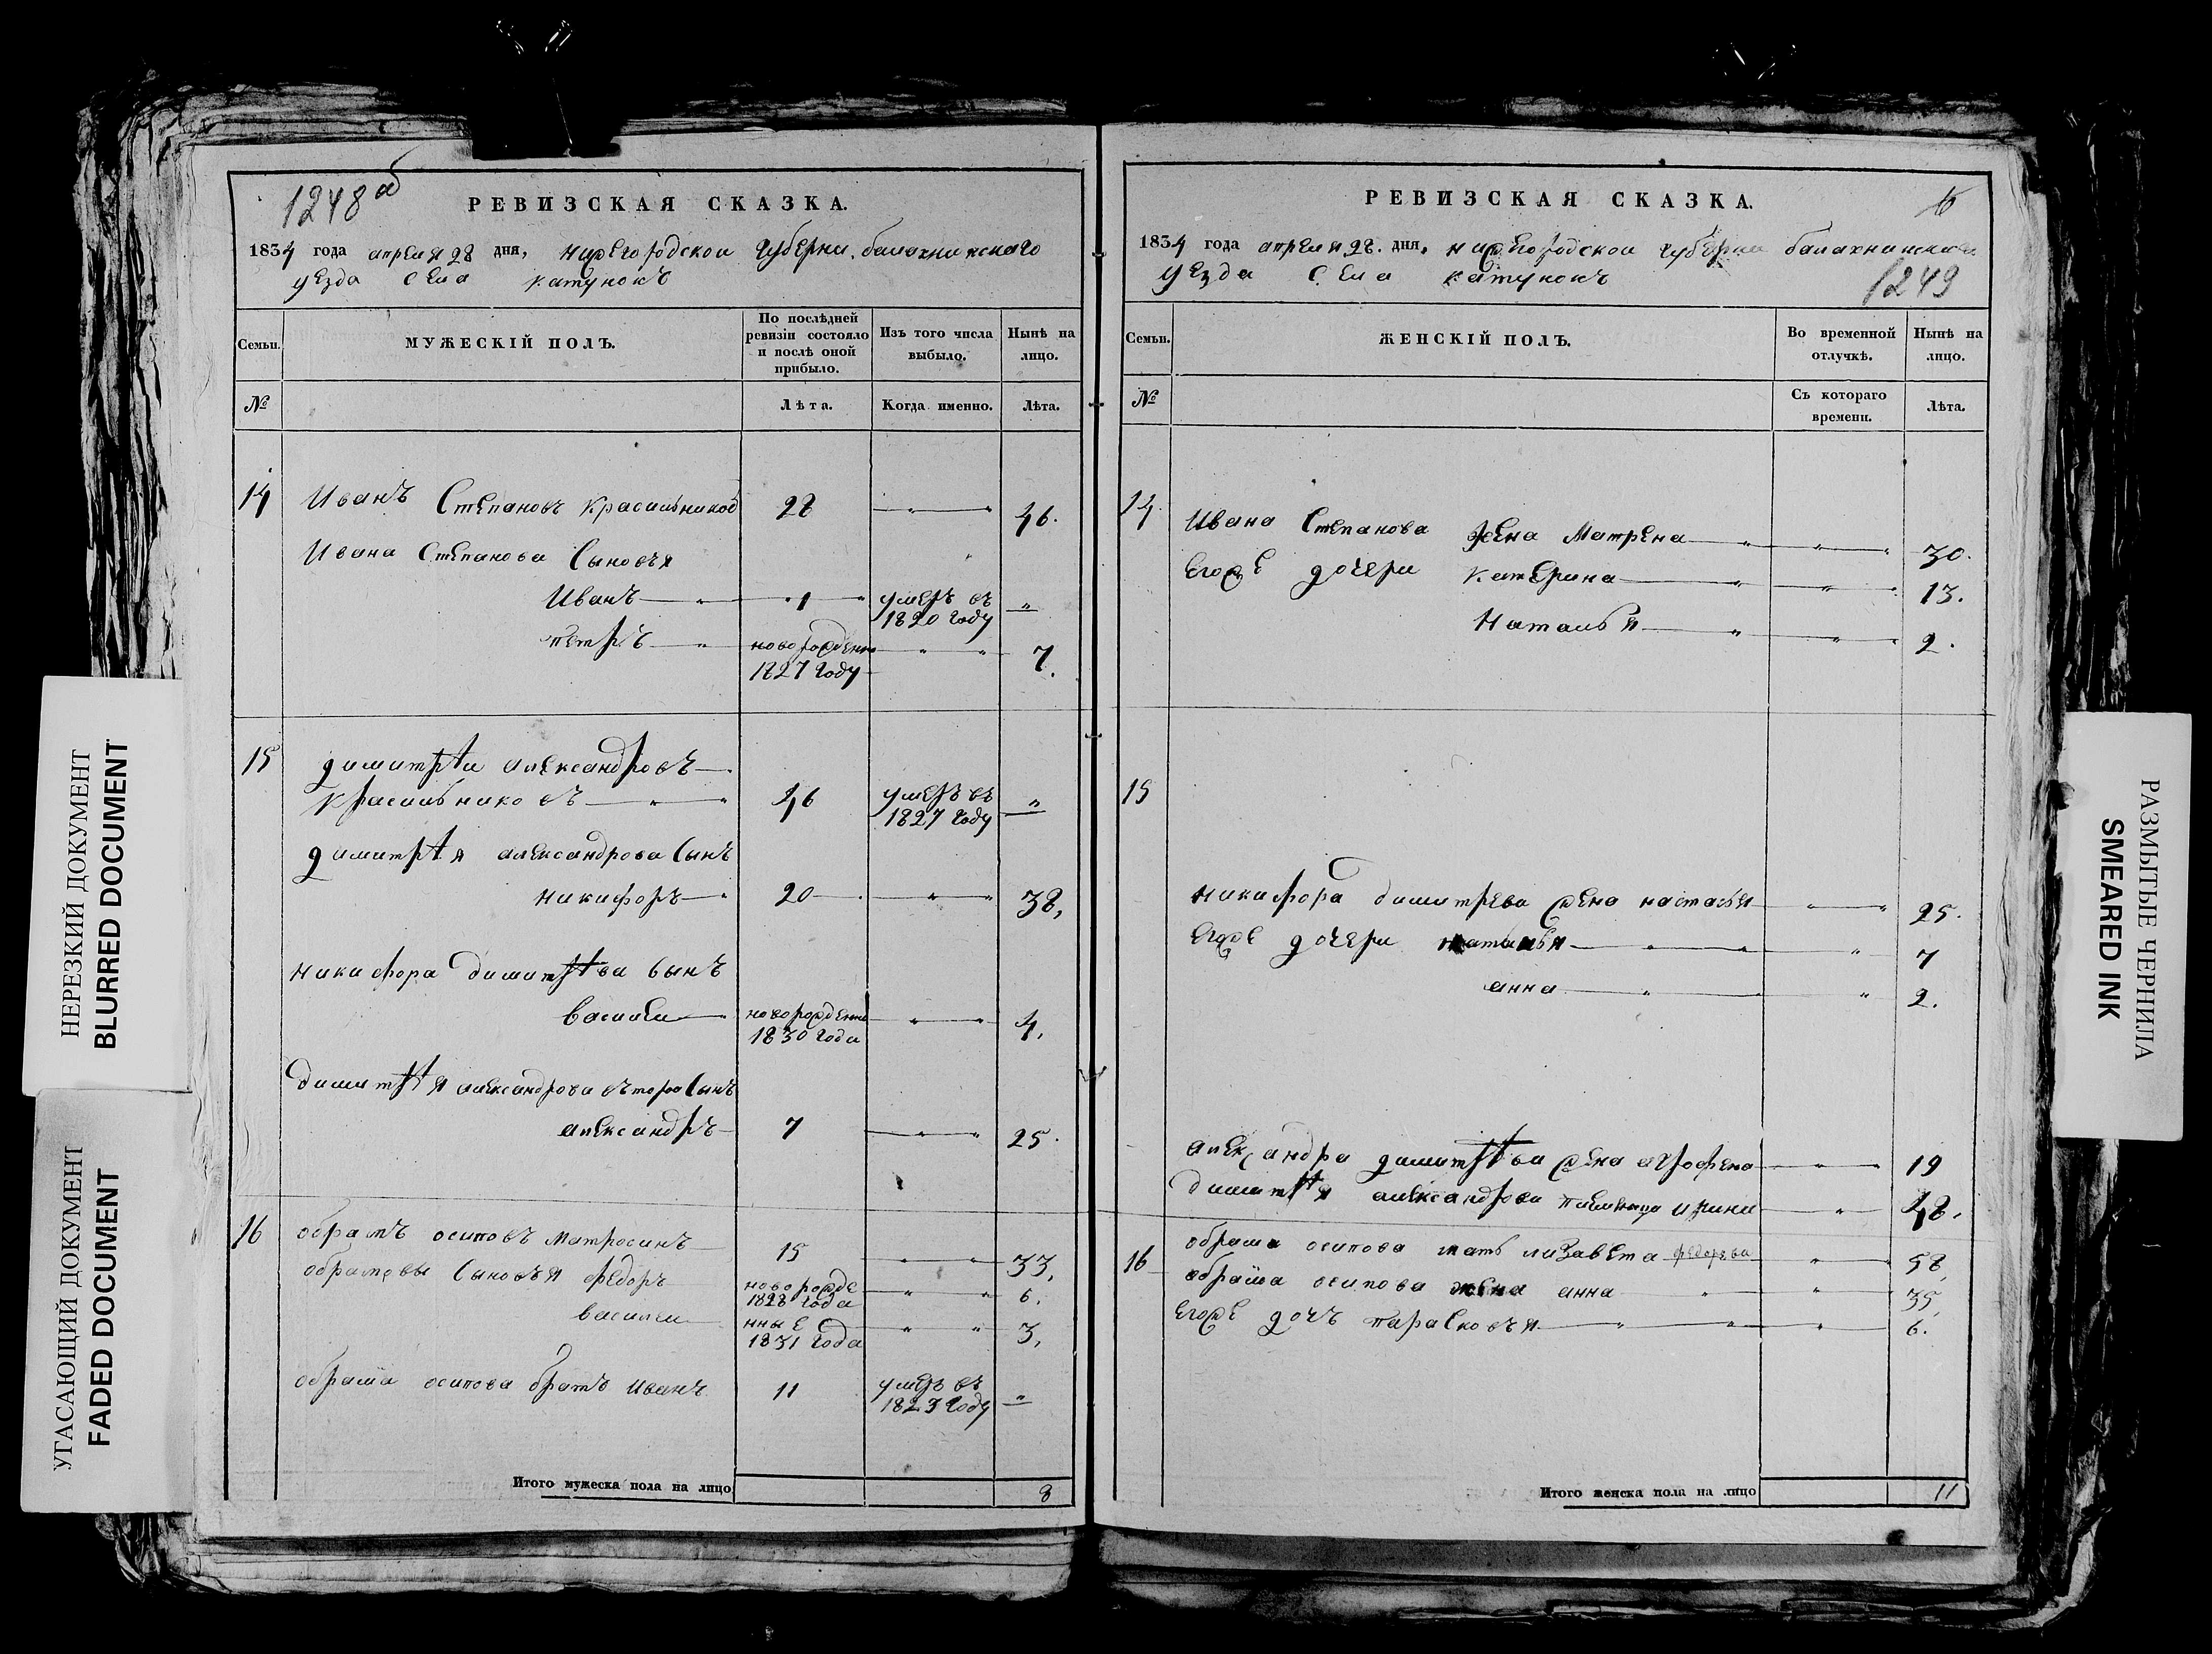 1248 об
РЕВИЗСКАЯ СКАЗКА.
1834 года апреля 28 дня, нижегородской губерни. балахнинскаго
уезда села катунокъ
Семьи.
МУЖЕСКІЙ ПОЛЪ.
По послѣдней ревизіи состояло и послѣ оной прибыло.
Изъ того числа выбыло.
Нынѣ на лицо.
№
Лѣта.
Когда именно.
Лѣта.
14 Иванъ Степановъ Красильников 28 46.
Ивана Степанова Сыновья
Иванъ 1 умеръ въ 1820 году
петръ новорожденъ 1827 году 7.
15 димитрѣи александровъ
Красильниковъ 46 умеръ въ 1827 году
димитрѣя александрова Сынъ
никифоръ 20 38,
никифора димитрѣва Сынъ
василеи новорожденны 1830 года 4,
димитрѣя александрова втора Сынъ
александръ 7 25.
16 обрамъ осиповъ матросинъ 15 33,
обрамовы Сыновья федоръ новорожде 1828 года 6.
василеи нные 1831 года 3,
обрама осипова братъ Иванъ 11 умеръ въ 1823 году
Итого мужеска пола на лицо 8
РЕВИЗСКАЯ СКАЗКА.
6
1834 года апреля 28. дня, нижегородскои губерни балахнинска
уезда села катунокъ
1249
Семьи.
ЖЕНСКІЙ ПОЛЪ.
Во временной отлучкѣ.
Нынѣ на лицо.
№
Съ котораго времени.
Лѣта.
14. Ивана Степанова жена Матрена 30.
Егоже дочери катерина 13.
Наталья 2.
15
никифора димитрева жена настасья 25.
Егоже дочери наталья 7
анна 2.
александра димитрѣва жена агрофена 19
димитрѣя александрова племянница ирина 48.
16 обрама осипова мать лизавета федорова 58,
обрама осипова жена анна 35,
Егоже дочь парасковья 6.
Итого женска пола на лицо 11
НЕРЕЗКИЙ ДОКУМЕНТ
BLURRED DOCUMENT
УГАСАЮЩИЙ ДОКУМЕНТ
FADED DOCUMENT
РАЗМЫТЫЕ ЧЕРНИЛА
SMEARED INK